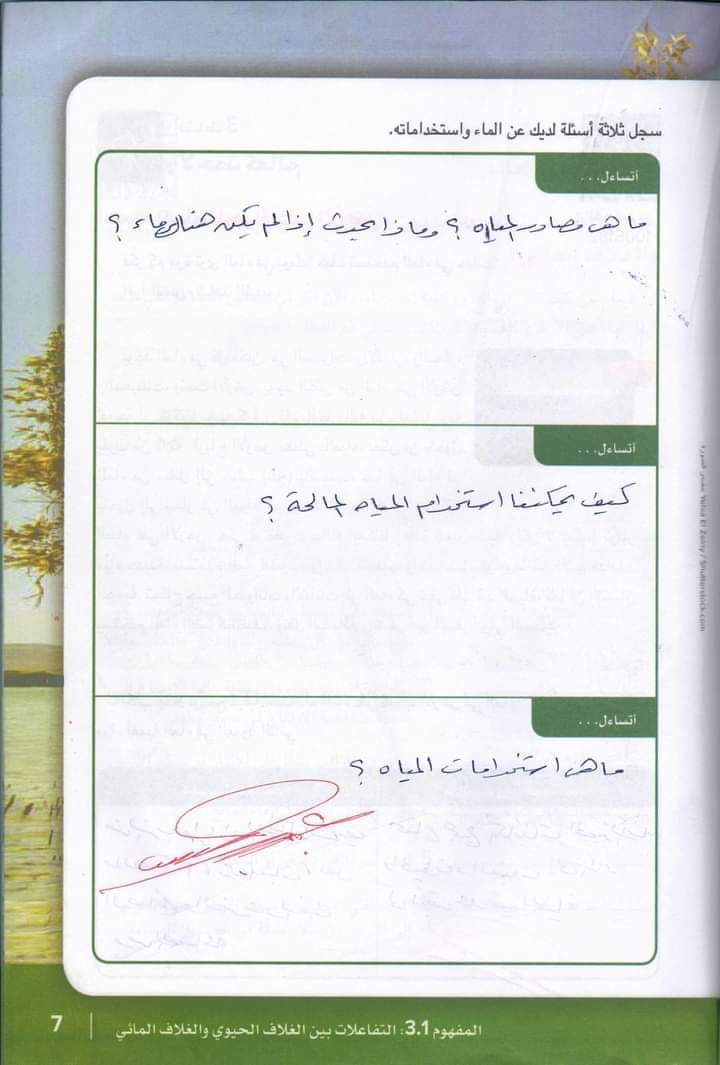 سجل ثلاثة أسئلة لديك عن الماء واستخداماته.
أتساءل...
ما هى مصادر المياه ؟ وماذا يحدث إذا لم يكن هناك ماء ؟
أتساءل...
كيف يمكننا استخدام المياه المالحة ؟
أتساءل...
ما هى استخدامات المياه ؟
مصدر الصورة: Yehia El Zeiny / Shutterstock.com
المفهوم 3.1: التفاعلات بين الغلاف الحيوي والغلاف المائي
7